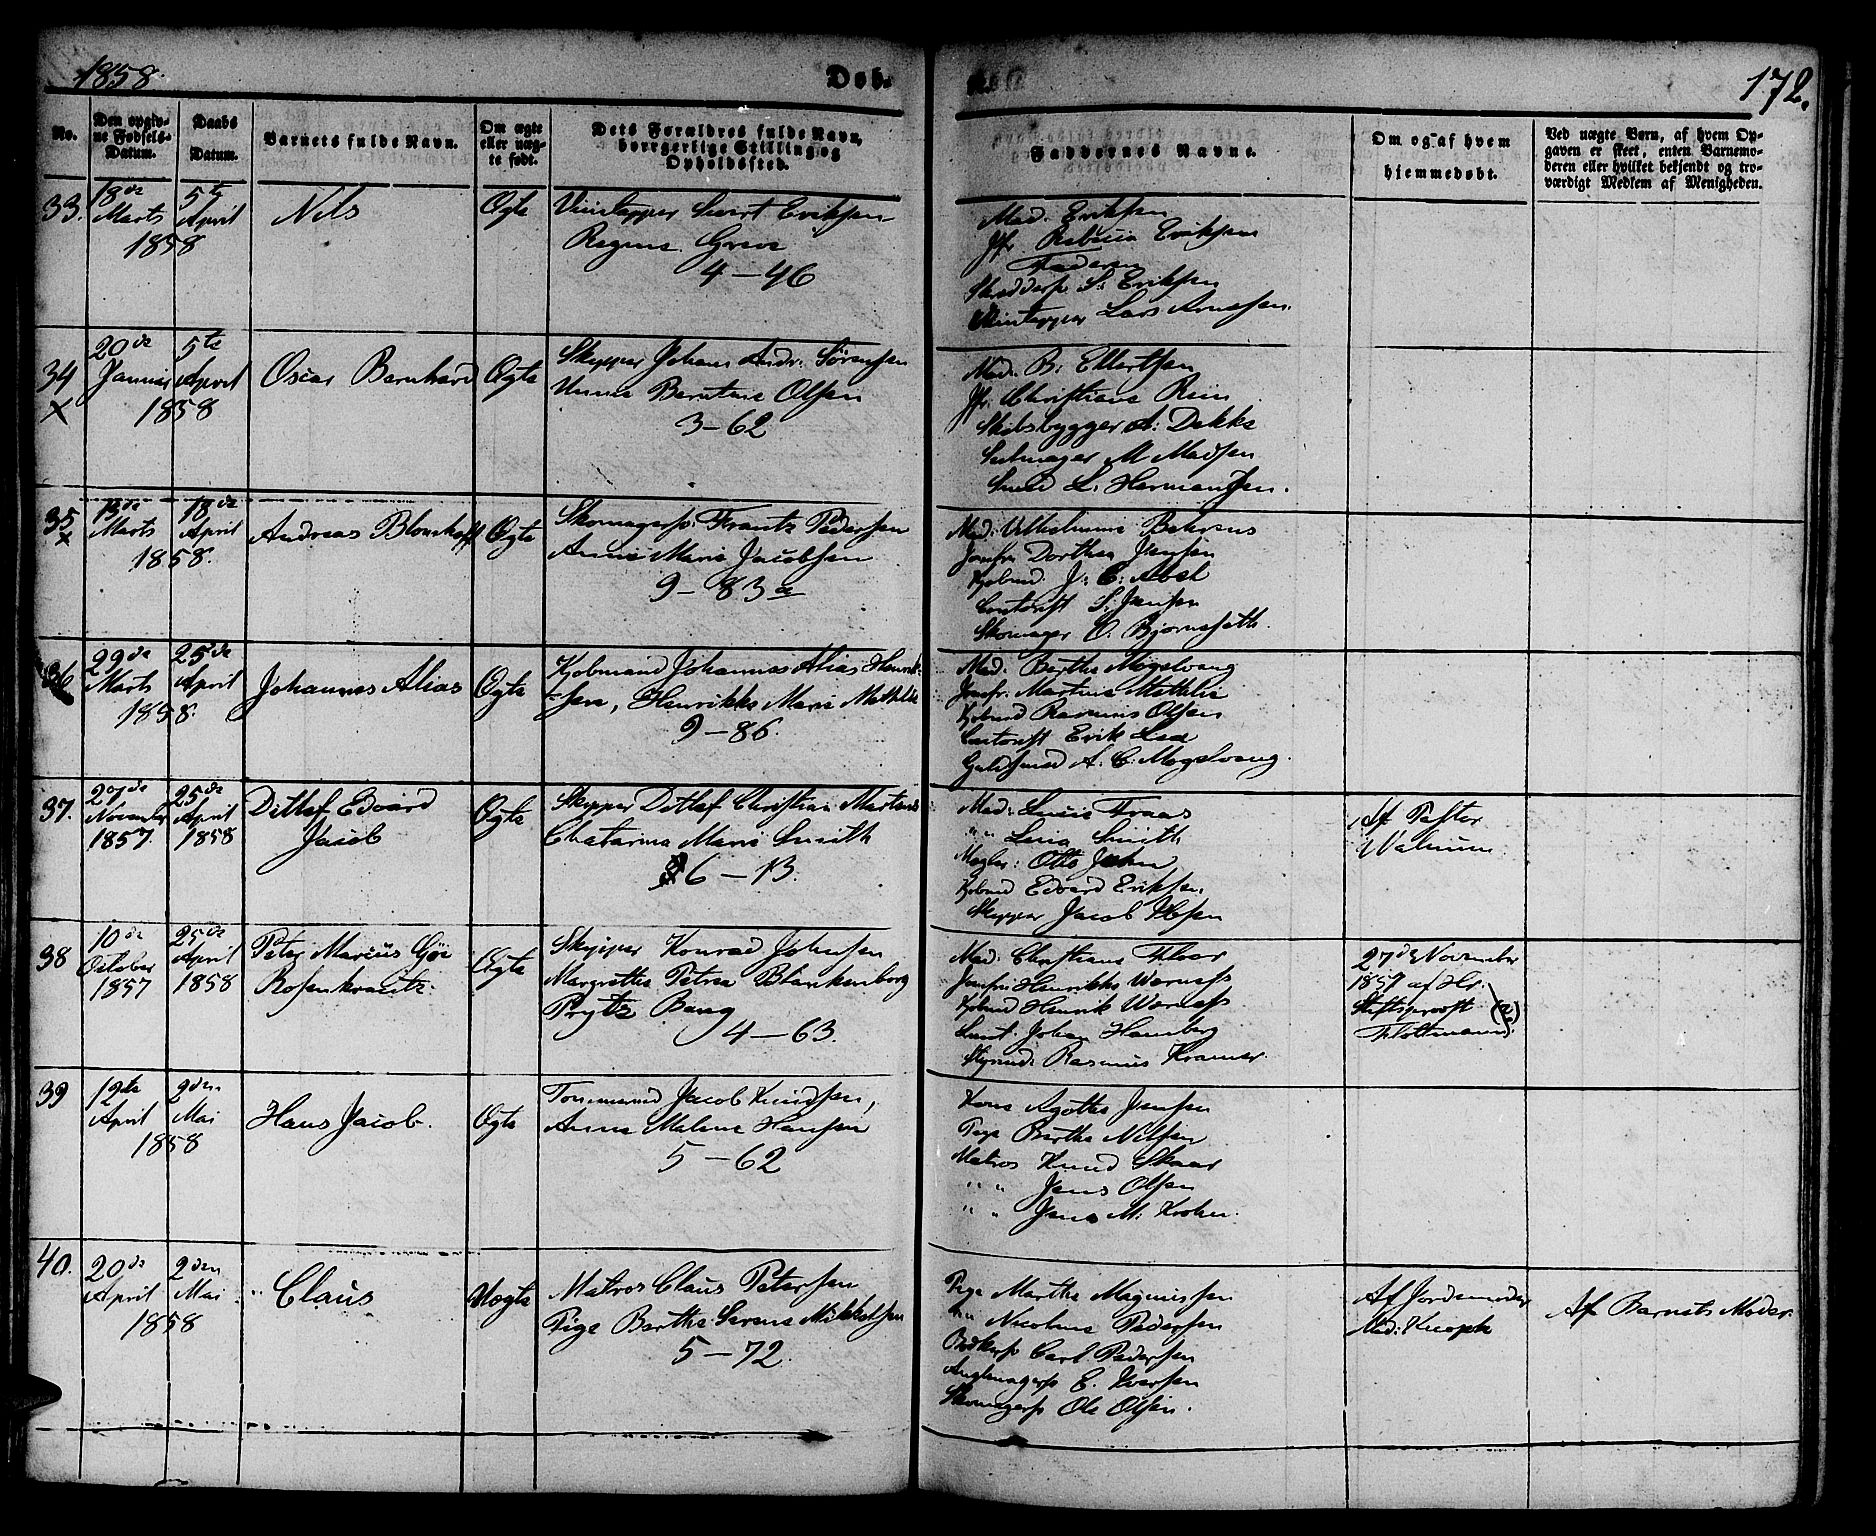 1858.
Døb-
172.
No.
Den opgiv-
ne Fødsels-
Datum.
Daabs
Datum.
Barnets fulde Navn.
Om ægte
eller uæg-
te født.
Dets Forældres fulde Navn,
borgerlige Stilling og
Opholdssted.
Faddernes Navne.
Om og af hvem
hjemmedøbt.
Ved uægte Børn, af hvem Op-
gaven er skeet, enten Barnemo-
deren eller hvilket bekjendt og tro-
værdigt Medlem af Menigheden.
33.
18de
Marts
5te
April
1858
Nils
Ægte
Vintapper Eriksen
Regine Greve
4-46
Mad. Eriksen
Jfr. Eriksen
Faderen
S. Eriksen
Vintapper Lars Arnesen.
34
X
20de
Januar
5te
April
1858
Oscar Bernhard
Ægte
Skipper Johan Andr. Sørensen
Berntine Olsen
3-62
Mad. B. Ellertsen
Jfr. Christiane
Skibsbygger A. Dekke
M Madsen
Smed L. Hermansen.
35
x
13de
Marts
18de
April
1858.
Andreas Blomhoff
Ægte
Skomagersv. Frantz Pedersen
Anne Marie Jacobsen
9-83a
Mad. Vilhelmine Behrens
Jomfr. Dorthea Jensen
Kjøbmd. J. C. Abel
Contorist S. Jensen
Skomager O. Bjørnseth.
36
29de
Marts
25de
April
1858.
Johannes Alias
Ægte
Kjøbmand Johannes Alias Henrik-
-sen, Henrikke Marie Mathilde
9-86.
Mad. Berthe Mogelvang
Jomfr. Martine Mathilde
Kjøbmd Rasmus Olsen
Contorist Erik Lea
Guldsmed A. C. Mogelvang.
37.
27de
November
1857.
25de
April
1858
Ditlef Edvard
Jacob
Ægte
Skipper Ditlef Christian Martens
Chatarina Marie Smith
6-13.
Mad. Lucie Fraas
" " Lina Smith
Mægler: Otto Jahn
Kjøbmd Edvard Eriksen.
Skipper Jacob Ibsen
Af Pastor
Walnum
38
10de
October
1857
25de
April
1858
Peter Marius Gjøe
Rosenkrantz.
Ægte
Skipper Konrad Johnsen
Margrethe Petrea Blankenborg
Prytz Bang
4-63.
Mad. Christiane Floor
Jomfr: Henrikke Werness
Kjøbmd Henrik Werness
Johan Hamberg
Styrmd. Rasmus Kramer
27de November
1857 af Hr.
Stiftsprovst
(?)
39
12te
April
2den
Mai
1858
Hans Jacob.
Ægte
Jacob Knudsen,
Anne Malene Hansen
5-62
Kone Agathe Jensen
Pige Berthe Nilsen
Matros Knud Skaar
" " Jens Olsen
" " Jens M. Krohn.
40.
20de
April
2den
Mai
1858
Claus
Uægte
Matros Claus Petersen
Pige Berthe Serene Mikkelsen
5-72.
Pige Marthe Magnussen
Nicoline Pedersen
Carl Pedersen
E. Iversen
Skomagersv Ole Olsen.
Af Jordemoder
Mad. Knoph
Af Barnets Moder.